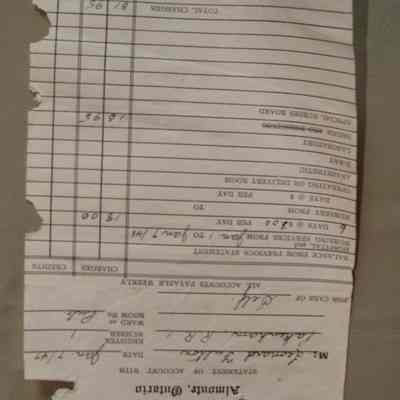 Almonte, Ontario
STATEMENT OF ACCOUNT WITH
M Leonard Fulton DATE Jan 7/47
Pakenham R.R. 1 REGISTER NUMBER
WARD or ROOM No. Pub
FOR CARE OF Self
ALL ACCOUNTS PAYABLE WEEKLY
CHARGES CREDITS
BALANCE FROM PREVIOUS STATEMENT
HOSPITAL and NURSING SERVICES FROM Jan 1 TO Jan 7/48
6 DAYS @ $ PER DAY 18 00
NURSERY FROM TO
DAYS @ $ PER DAY
OPERATING OR DELIVERY ROOM
ANAESTHETIC
X-RAY
LABORATORY
DRUGS AND DRESSINGS
SPECIAL NURSES BOARD
TOTAL CHARGES